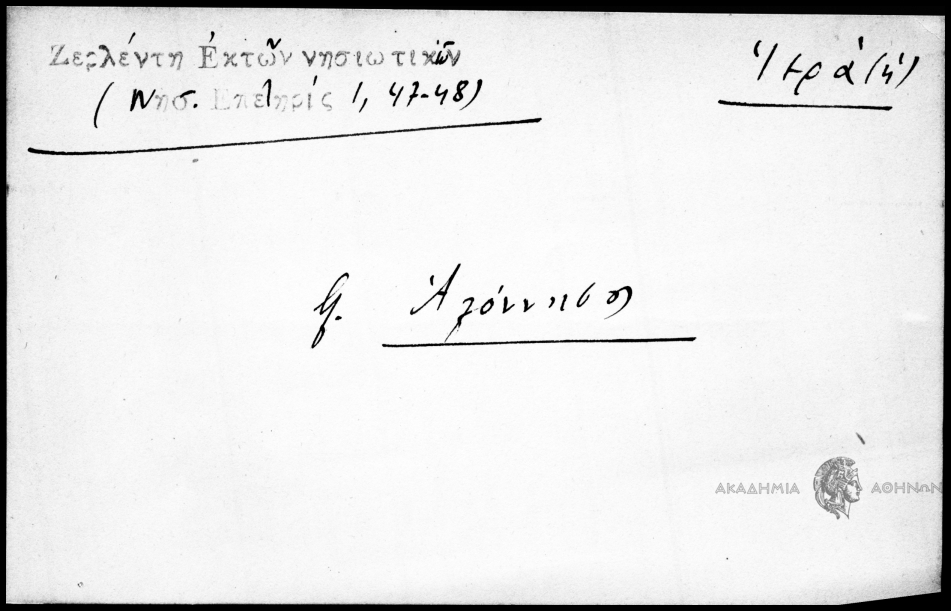 Ζερλέντη Ἐκ τῶν νησιωτικῶν
Ἱερά (ἡ)
(Νησ. Ἐπετηρίς 1, 47-48)
Ἁλόννησος
ΑΚΑΔΗΜΙΑ ΑΘΗΝΩΝ